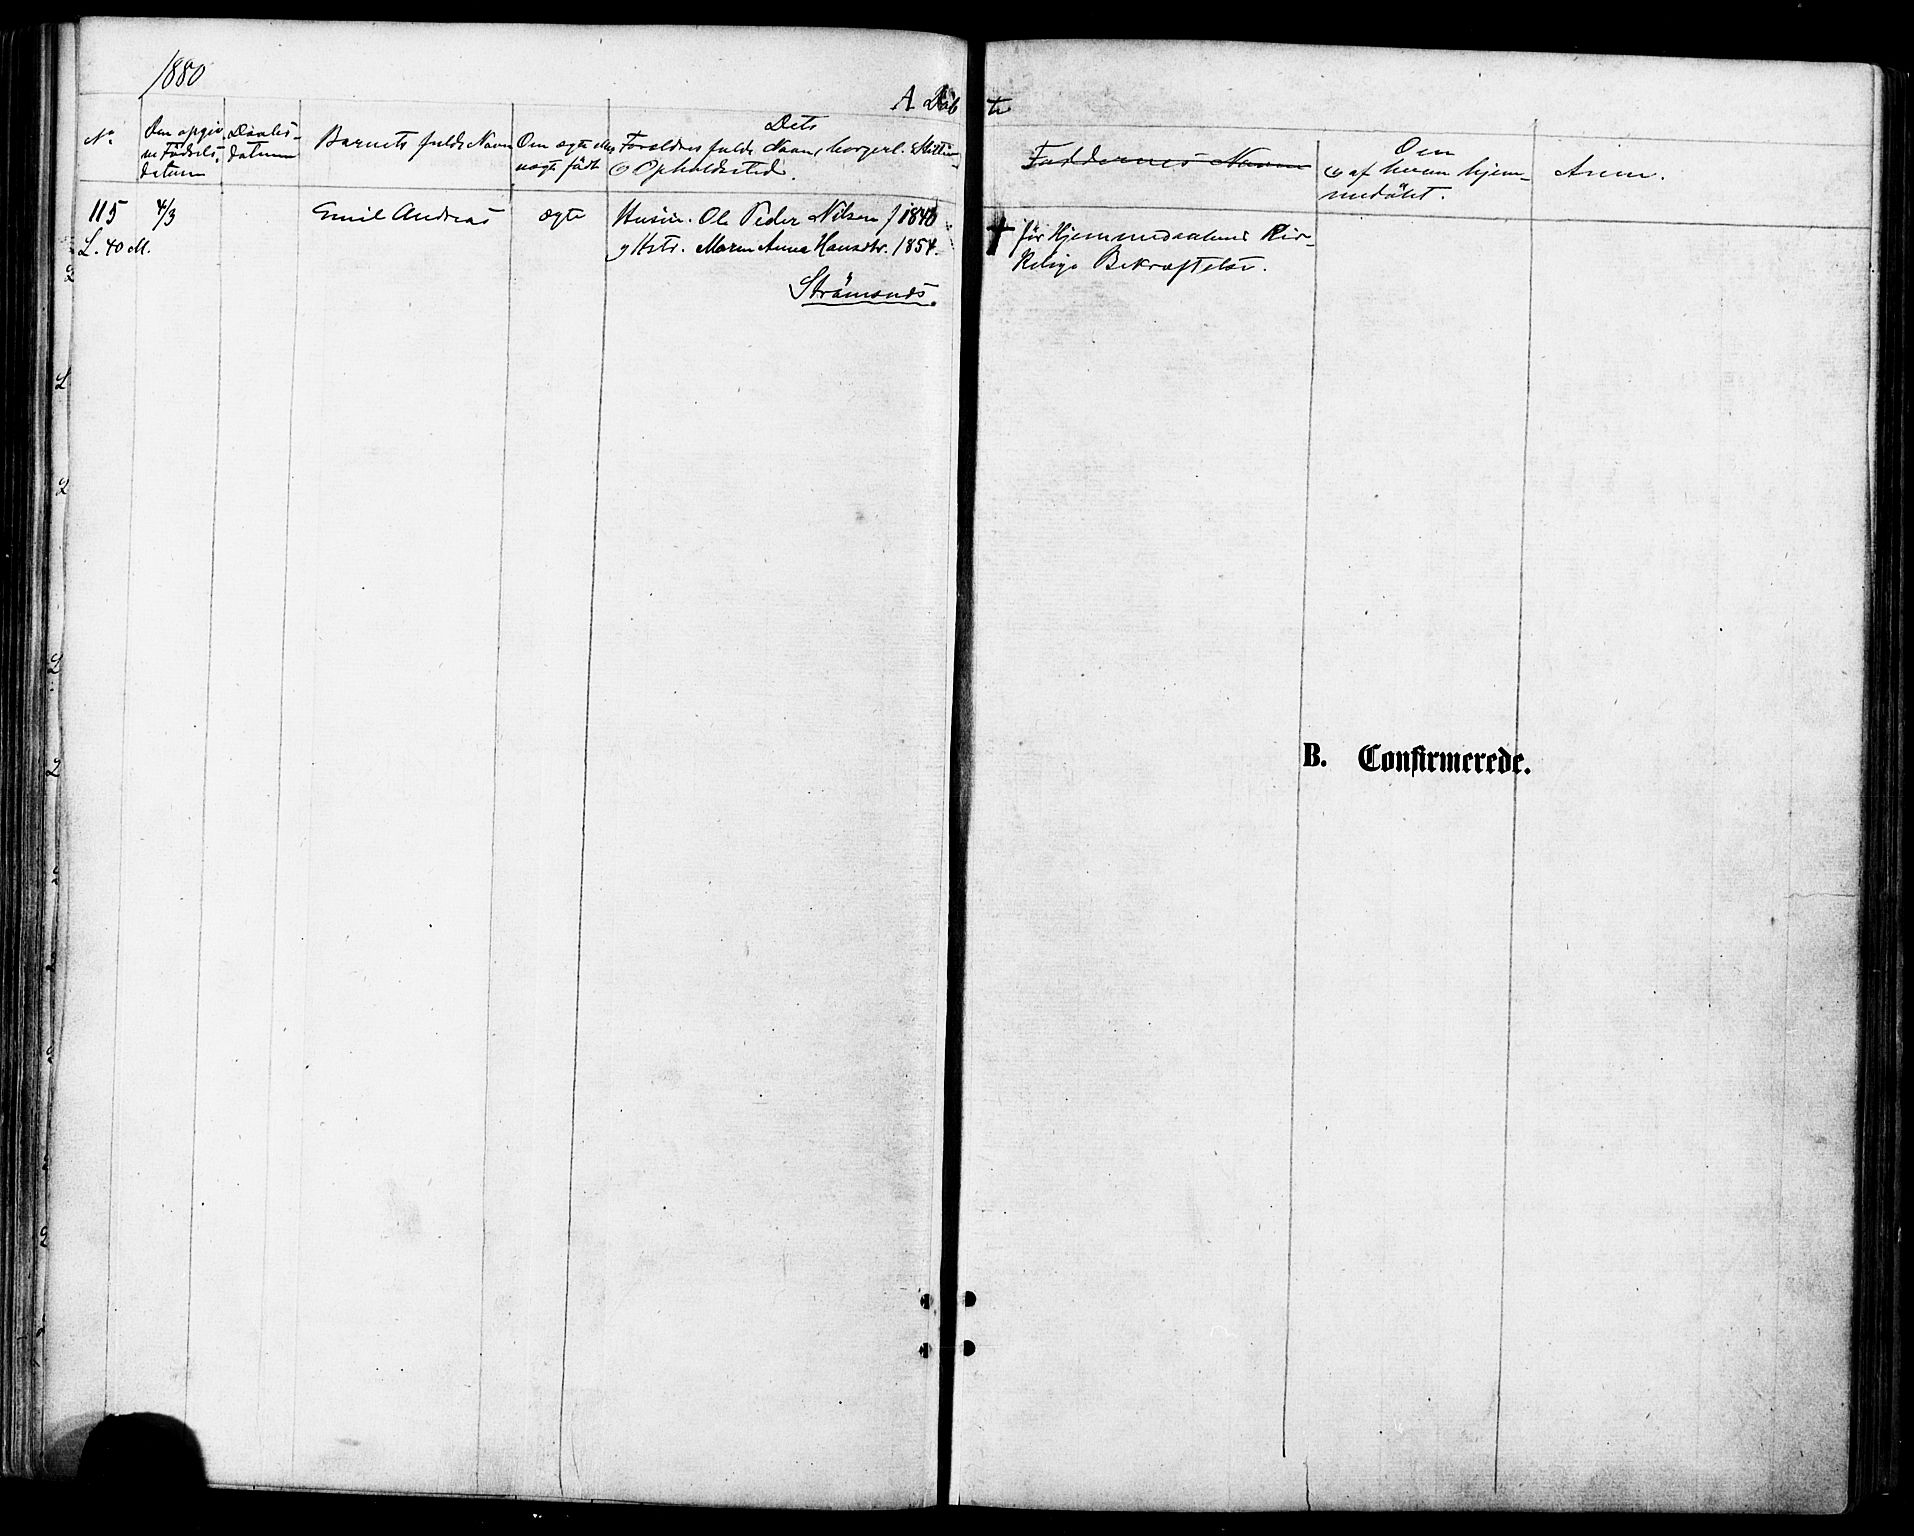 1880
A Döb te
No
Den opgiv
ne Födsels
datum
Daabs-
datum
Barnets fulde Navn
Om ægte eller
uægte födt
Dets
Forældres fulde Navn, borgerl. Stilling
og Opholdssted.
Faddernes Navne
Om
og af hvem hjem-
medöbt.
Anm.
115
4/3
Emil Andreas
ægte
Husm. Ole Peder Nilsen f 1840
L. 40 M.
g Hstr. Maren Anna Hansdtr. 1854.
Strömsnæs.
† för Hjemmedaabens Kir-
kelige Bekræftelse.
B. Confirmerede.